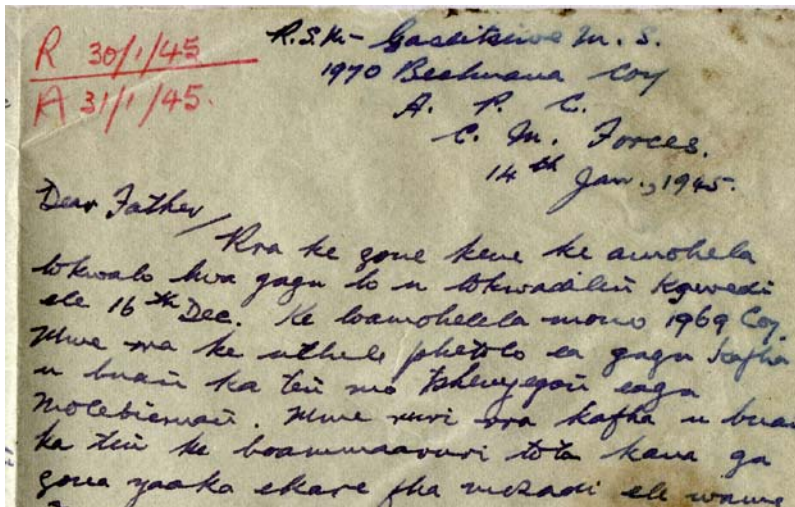 R 30/1/45
A 31/1/45.
R.S.M. Gaseitsiwe M. S.
1970 Bechuana Coy
A. P. C.
C. M. Forces.
14th Jan., 1945.
Dear Father/
Rra ke gone kene ke amohela
lokwalo lwa gagu lo u lokwadileñ Kgwedi
ele 16th Dec. Ke loamohelela mono 1969 Coy.
Mme rra ke utlule phetolo ea gagu kafha
u buañ ka teñ mo
Mme ruri rra kafha u buañ
ka teñ ke boammaaruri tota kana ga
gona yaaka ekare fha mosadi ele